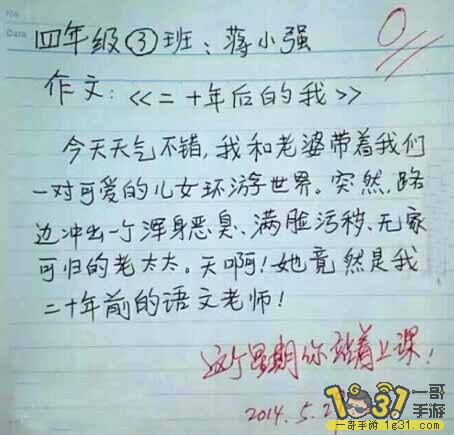 No.
Date
四年级③班：蒋小强
0
作文：《二十年后的我》
今天天气不错，我和老婆带着我们
一对可爱的儿女环游世界。突然，路
边冲出一个浑身恶臭、满脸污秽、无家
可归的老太太。天啊！她竟然是我
二十年前的语文老师！
这个星期你站着上课！
2014.5.2
1g31
一哥手游
一哥手游 1g31.com